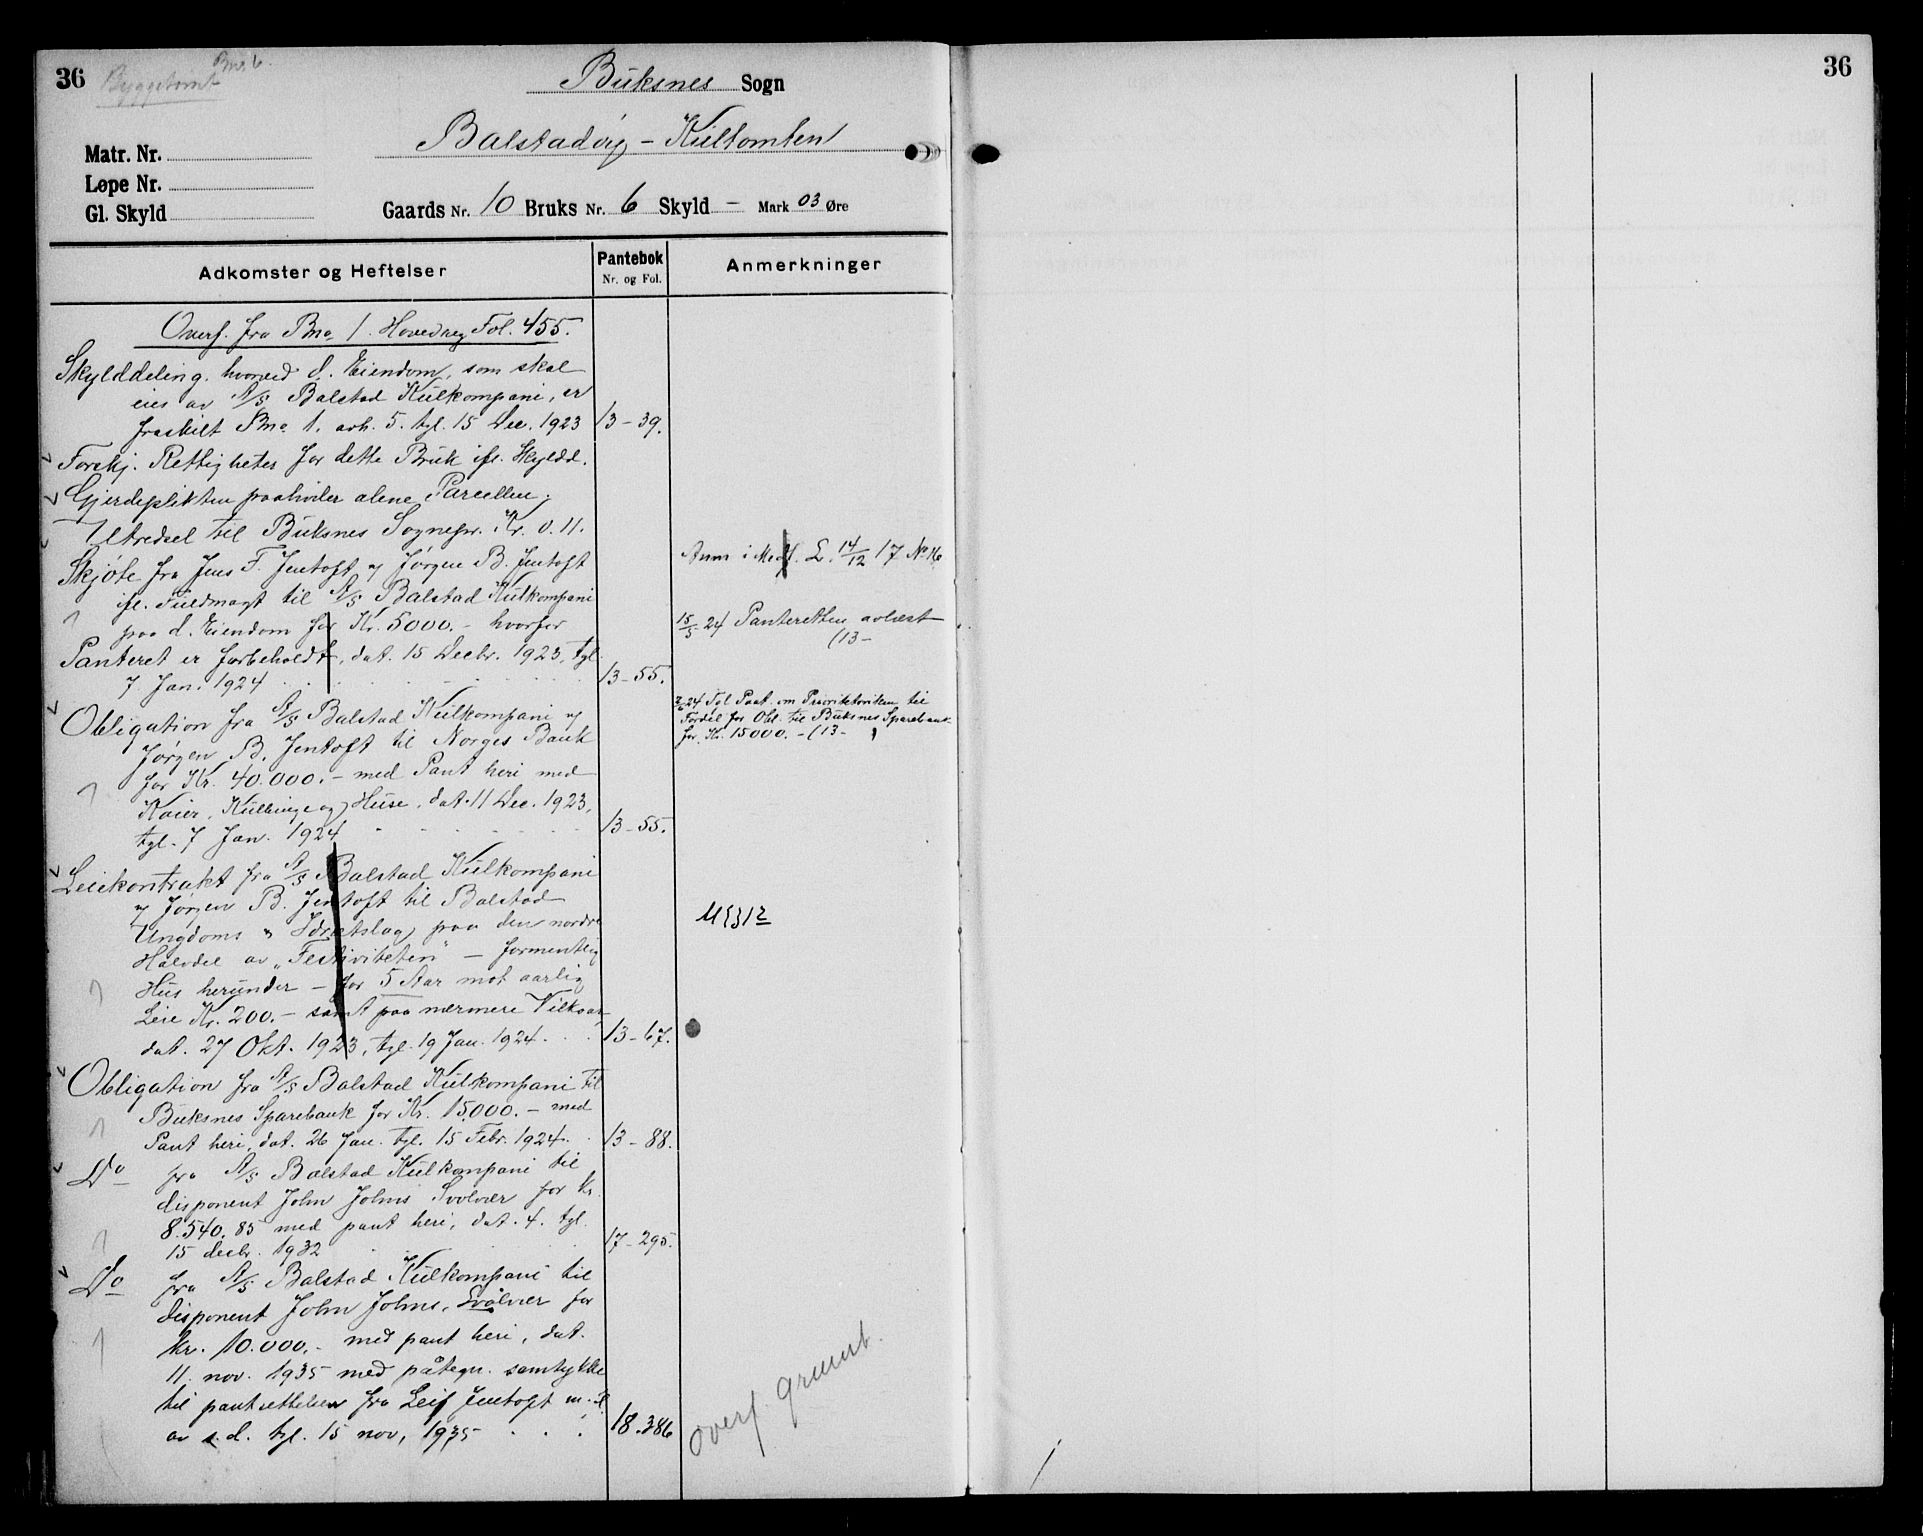 36
Byggetomt Bno. 6.
Buksnes Sogn
Matr. Nr.
Balstadøy - Kultomten
Løpe Nr.
Gl. Skyld
Gaards Nr. 10 Bruks Nr. 6 Skyld - Mark 03 Øre
Adkomster og Heftelser
Pantebok
Nr. og Fol.
Anmerkninger
Overf. fra Bno 1. Hovedreg Fol. 455.
Skylddeling, hvorved d. Eiendom, som skal
eies av A/S Balstad Kulkompani, er
fraskilt Bno 1. avh. 5. tgl. 15 Dec. 1923 13-39.
Forskj. Rettigheter for dette Bruk ifl. Skyldd.
Gjerdeplikten paahviler alene Parcellen.
Utredsel til Buksnes Sognepr. Kr. 0.11.
Skjøte fra Jens F. Jentoft og Jørgen B. Jentoft
ifl. Fuldmagt til A/S Balstad Kulkompani
paa d. Eiendom for Kr. 5000.- hvorfor
Panteret er forbeholdt, dat. 15 Decbr. 1923, tgl.
7 Jan. 1924 13-55.
Anm i L. 14/12 17 No 16
15/5-24 Panteretten avlæst
(13-
Obligation fra A/S Balstad Kulkompani og
Jørgen B. Jentoft til Norges Bank
for Kr. 40.000.- med Pant heri med
Kaier, Kulbinge og Huse, dat. 11 Dec. 1923,
tgl. 7 Jan. 1924 13-55.
24 Tgl Paat. om Prioritetsviken til
Fordel for Obl. til Buksnes Sparebank
for Kr. 15000.- (13-
Leiekontrakt fra A/S Balstad Kulkompani
og Jørgen B. Jentoft til Balstad
Ungdoms & Idrætslag paa den nordre
Halvdel av "Festiviteten" - formentlig
Hus herunder - for 5 Aar mot aarlig
Leie Kr. 200.- samt paa nærmere Vilkaar
dat. 27 Okt. 1923, tgl. 19 Jan. 1924. 13-67.
Obligation fra A/S Balstad Kulkompani til
Buksnes Sparebank for Kr. 15.000.- med
Pant heri, dat. 26 Jan. tgl. 15 Febr. 1924. 13-88.
Do fra A/S Balstad Kulkompani til
disponent John Johns Svolvær for kr.
8.540.85 med pant heri, dat. 4. tgl.
15 decbr. 1932 17-295.
Do fra A/S Balstad Kulkompani til
disponent John Johns, Svolvær for
kr. 10.000.- med pant heri, dat.
11. nov. 1935 med påtegn. samtykke
til pantsettelsen fra Leif Jentoft m. fl.
av s.d. tgl. 15 nov, 1935 18.386
Overf. grunnb.
36